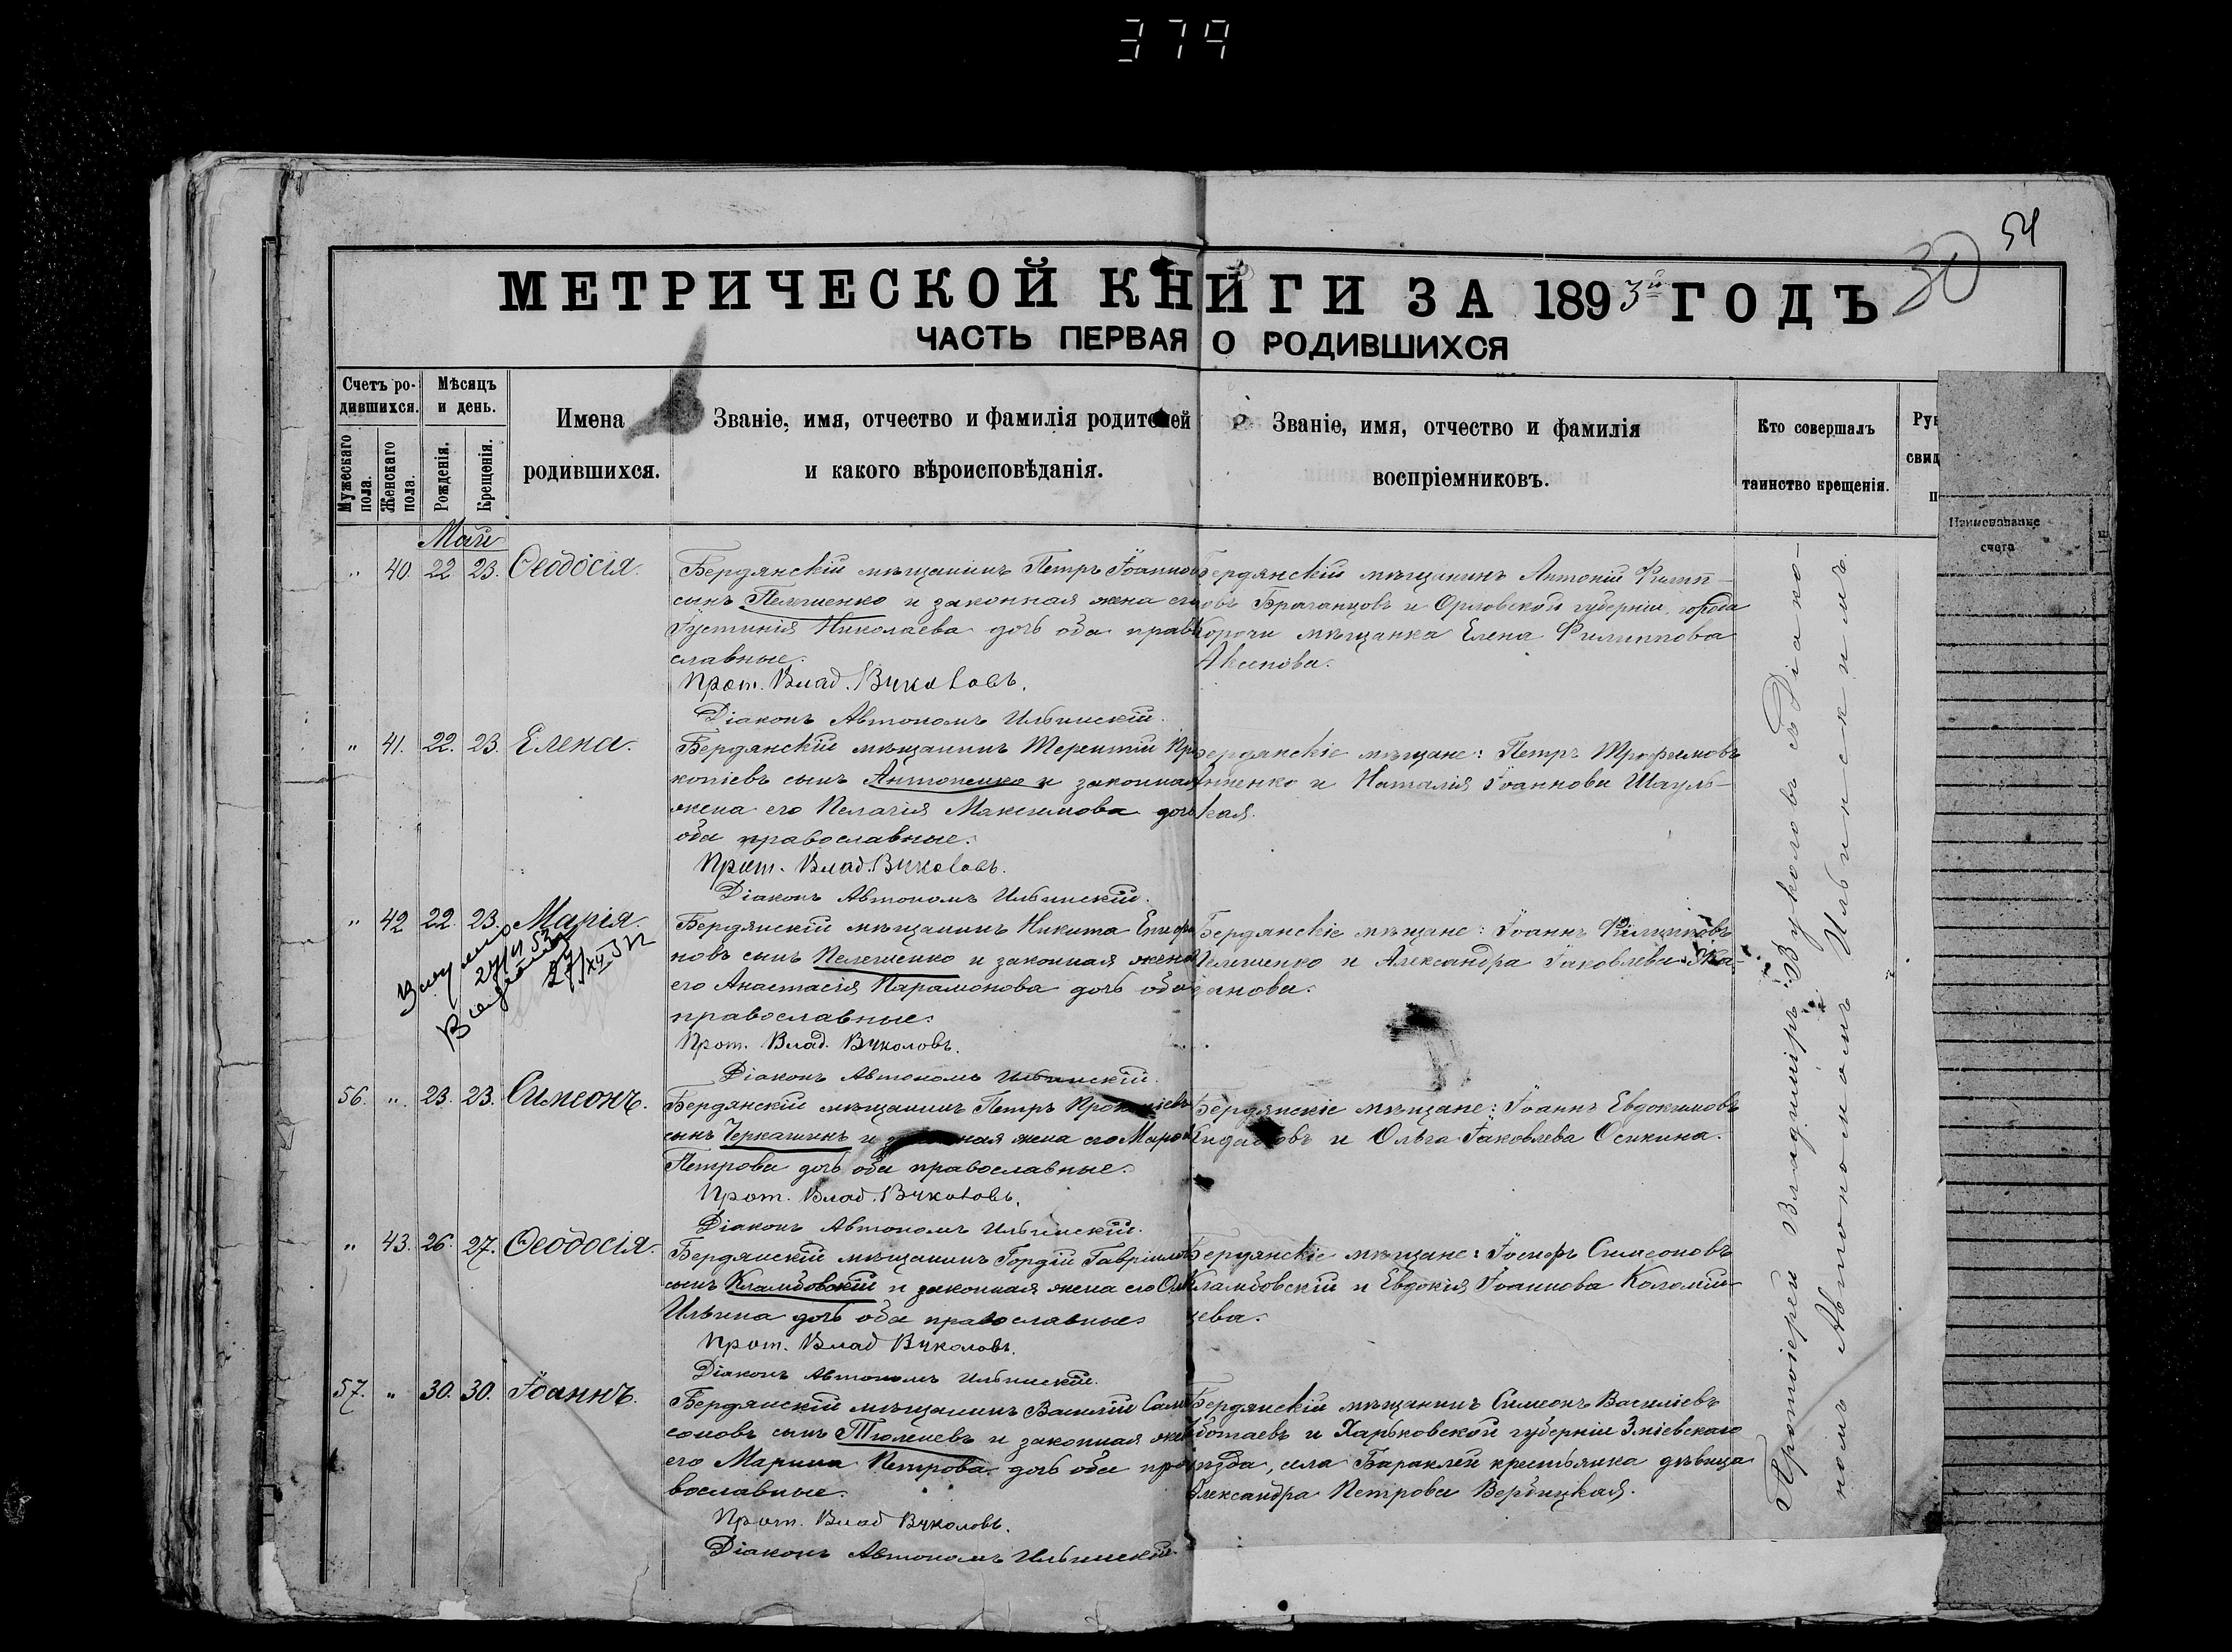 379
54
30
МЕТРИЧЕСКОЙ КНИГИ ЗА 1893й ГОДЪ
ЧАСТЬ ПЕРВАЯ О РОДИВШИХСЯ
Счетъ ро-
дившихся.
Мужескаго
пола.
Женскаго
пола.
Мѣсяцъ
и день.
Рожденія.
Крещенія.
Имена
родившихся.
Званіе, имя, отчество и фамилія родителей
и какого вѣроисповѣданія.
Званіе, имя, отчество и фамилія
воспріемниковъ.
Кто совершалъ
таинство крещенія.
Рук
свид
п
Наименование
счета
Май
" 40. 22 23. Ѳеодосія.
Бердянскій мѣщанинъ Петръ Іоаннов
сынъ Пелешенко и законная жена его
Іустинія Николаева дочь оба право
славные.
Прот. Влад. Вуколовъ.
Діаконъ Автономъ Ильинскій.
Бердянскій мѣщанинъ Антоній Филип-
овъ и Орловской губерніи, города
мѣщанка Елена Филиппова
" 41. 22. 23. Елена.
Бердянскій мѣщанинъ Терентій Про
копіевъ сынъ Антоненко и законная
жена его Пелагія Максимова дочь
оба православные.
Прот. Влад. Вуколовъ.
Діаконъ Автономъ Ильинскій.
Бердянскіе мѣщане: Петръ Трофимовъ
и Наталія Іоаннова Шауль-
кая.
" 42 22. 23. Марія.
27/XII 52
Бердянскій мѣщанинъ Никита
новъ сынъ Пелешенко и законная жена
его Анастасія Парамонова дочь оба
православные.
Прот. Влад. Вуколовъ.
Діаконъ Автономъ Ильинскій.
Бердянскіе мѣщане: Іоаннъ Филипповъ
Пелешенко и Александра Іаковлева
56. " 23. 23. Симеонъ.
Бердянскій мѣщанинъ Петръ Прокопіевъ
сынъ Черкашинъ и законная жена его
Петрова дочь оба православные.
Прот. Влад. Вуколовъ.
Діаконъ Автономъ Ильинскій.
Бердянскіе мѣщане: Іоаннъ Евдокимовъ
и Ольга Іаковлева Осикина.
" 43. 26. 27. Ѳеодосія.
Бердянскій мѣщанинъ Гордій Гавріилов
сынъ Кламбовскій и законная жена его
Ильина дочь оба православные.
Прот. Влад Вуколовъ.
Діаконъ Автономъ Ильинскій.
Бердянскіе мѣщане: Іосифъ Симеоновъ
Кламбовскій и Евдокія Іоаннова Коломій-
цева.
57. " 30. 30. Іоаннъ.
Бердянскій мѣщанинъ Василій Сам
соновъ сынъ Тюленевъ и законная жена
его Марина Петрова дочь оба пра
вославные.
Прот. Влад Вуколовъ.
Діаконъ Автономъ Ильинскій.
Бердянскій мѣщанинъ Симеонъ Василіевъ
и Харьковской губерніи Зміевскаго
уѣзда, села Бараклеи крестьянка дѣвица
Александра Петрова Вербицкая.
Протоіерей Владиміръ Вуколовъ съ Діако-
номъ Автономомъ Ильинскимъ.